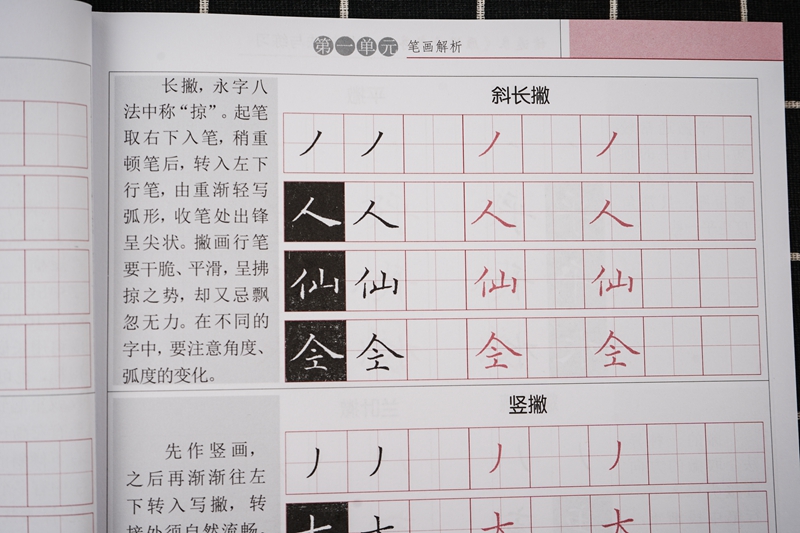 第一单元 笔画解析
长撇，永字八
法中称“掠”。起笔
取右下入笔，稍重
顿笔后，转入左下
行笔，由重渐轻写
弧形，收笔处出锋
呈尖状。撇画行笔
要干脆、平滑，呈拂
掠之势，却又忌飘
忽无力。在不同的
字中，要注意角度、
弧度的变化。
斜长撇
丿 丿 丿 丿
人 人 人 人
仙 仙 仙 仙
仝 仝 仝 仝
先作竖画，
之后再渐渐往左
下转入写撇，转
接处须自然流畅。
竖撇
丿 丿 丿 丿